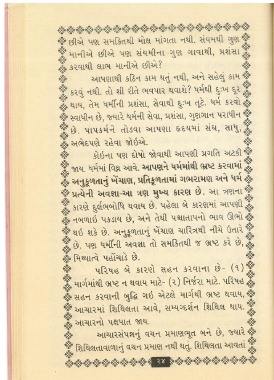 છીએ પણ સમકિતથી મોલ માંગતા નથી. સંયમથી ગુણ
માનીએ છીએ કે સંયમીના ગુણ ગાવાથી, પ્રશંસા
કરવાથી લાભ માનીએ છીએ?
આપણાથી કઠિન કામ થતું નથી, અને સહેલું કામ
કરવું નથી. તો શી રીતે ભવપાર થવાશે? ધર્મથી દુઃખ દૂર
થાય, તેમ ધર્મીની પ્રશંસા, સેવાથી દુઃખ તૂટે. ધર્મ કરવો
સ્વાધીન છે, જ્યારે ધર્મીની સેવા, પ્રશંસા, ગુણગાન પરાધીન
છે. પાપકર્મને તોડવા આપણા હૃદયમાં સંઘ, સાધુ,
અભેદપણે રહેવા જોઈએ.
કોઇના પણ દોષો જોવાથી આપણી પ્રગતિ અટકી
જાય. ધર્મમાં વિઘ્ન આવે. આપણને ધર્મમાંથી ભ્રષ્ટ કરવામાં
અનુકૂળતાનું ખેંચાણ, પ્રતિકૂળતામાં ગભરામણ અને ધર્મ
પ્રત્યેની અવજ્ઞા-આ ત્રણ મુખ્ય કારણ છે. આ ત્રણના
કારણે દુર્લભબોધિ થવાય છે. પહેલા બે કારણમાં આપણી
નબળાઇ પકડાય છે, અને તેથી પશ્ચાતાપનો ભાવ ઊભો
થઇ શકે છે. અનુકૂળતાનું ખેંચાણ ચારિત્રથી નીચે ઉતારે
છે. પણ ધર્મીની અવજ્ઞા તો સમકિતથી જ ભ્રષ્ટ કરે છે,
મિથ્યાત્વે પહોંચાડે છે.
પરિષહ બે કારણે સહન કરવાના છે- (૧)
માર્ગમાંથી ભ્રષ્ટ ન થવાય માટે- (૨) નિર્જરા માટે. પરિષહ
સહન કરવાની બુદ્ધિ ગઇ એટલે માર્ગથી ભ્રષ્ટ થવાય,
આચારમાં શિથિલતા આવે, સમ્યગ્દર્શન શિથિલ થાય.
આચારનો પક્ષપાત જાય.
આચારસંપન્નનું વચન પ્રમાણભૂત બને છે, જ્યારે
શિથિલતાવાળાનું વચન પ્રમાણ નથી થતું. શિથિલતા આવતા
૨૪